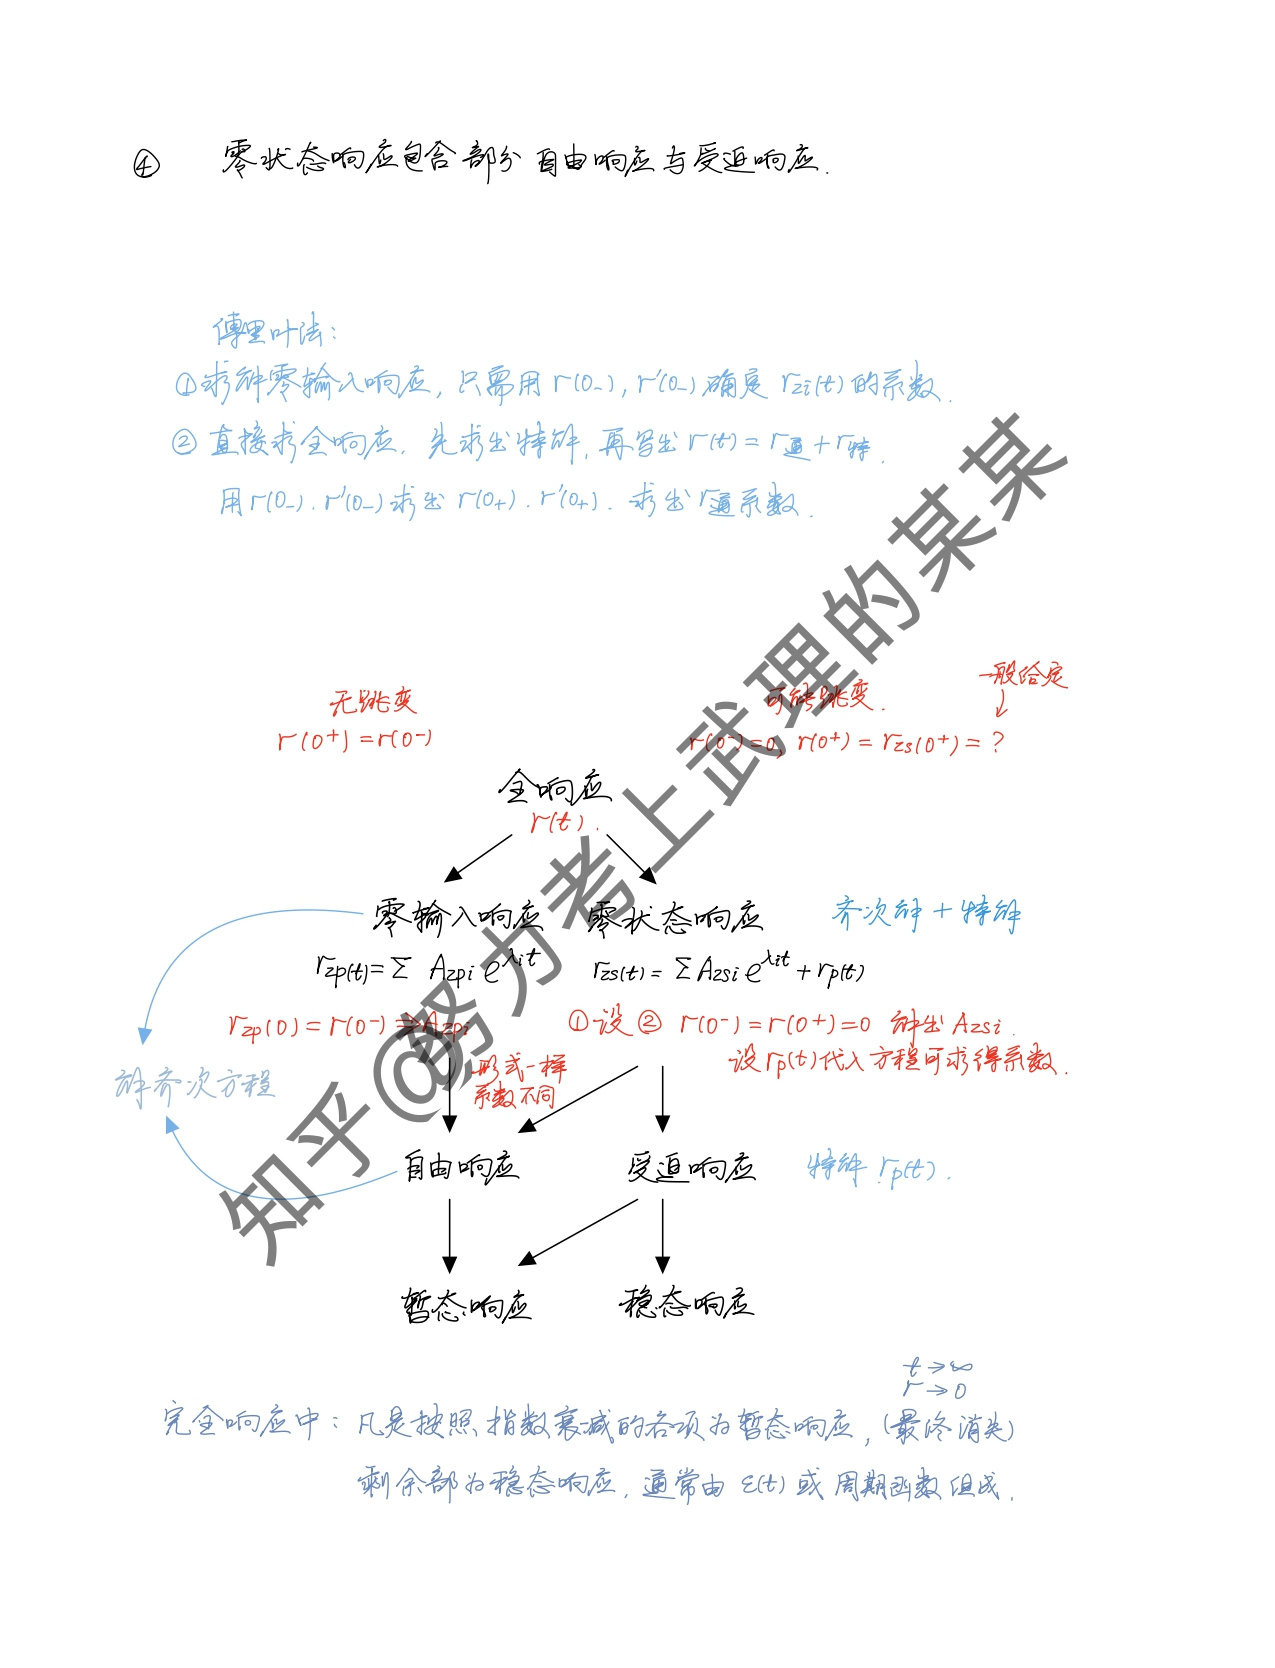 ④ 零状态响应包含部分自由响应与受迫响应.
傅里叶法:
①求解零输入响应, 只需用 r(0₋), r'(0₋) 确定 rzi(t) 的系数.
② 直接求全响应. 先求出特解, 再写出 r(t) = r通 + r特.
用 r(0₋). r'(0₋) 求出 r(0₊). r'(0₊). 求出 r通系数.
一般给定
无跳变
可能跳变.
r(0⁺) = r(0⁻)
r(0⁻)=0, r(0⁺) = rzs(0⁺) = ?
全响应
r(t).
零输入响应 零状态响应 齐次解 + 特解
rzp(t) = Σ Azpi e^λit rzs(t) = Σ Azsi e^λit + rp(t)
rzp(0) = r(0⁻) ⇒ Azpi ①设 ② r(0⁻) = r(0⁺) = 0 解出 Azsi.
设 rp(t) 代入方程可求得系数.
形式一样
系数不同
解齐次方程
自由响应 受迫响应 特解 rp(t).
暂态响应 稳态响应
t → ∞
r → 0
完全响应中: 凡是按照指数衰减的各项为暂态响应, (最终消失)
剩余部为稳态响应, 通常由 ε(t) 或 周期函数组成.
知乎@努力考上武理的某某